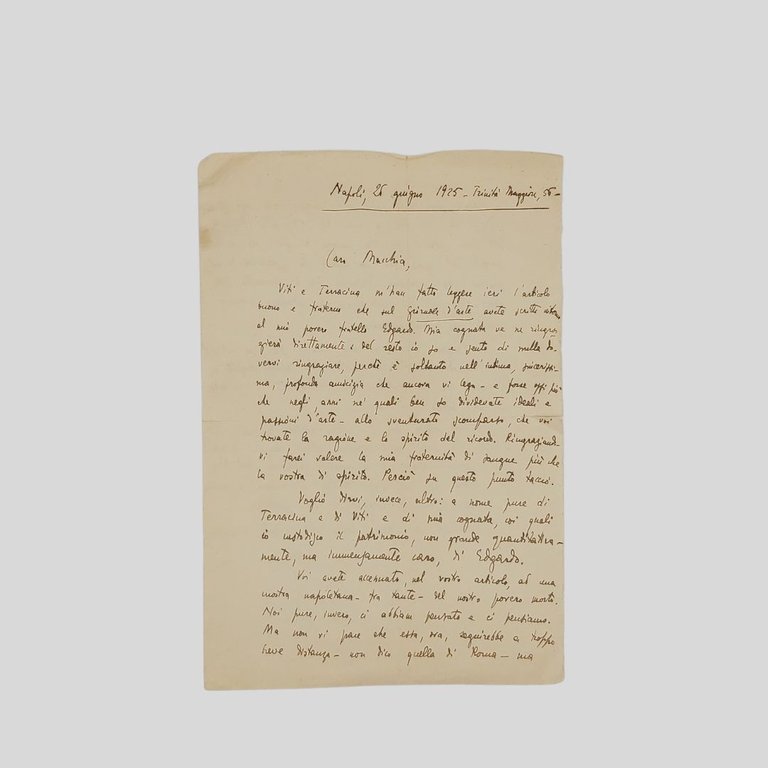 Napoli, 26 giugno 1925 - Trinità Maggiore, 56 -
Caro Macchia,
Viti e Terracina m'han fatto leggere ieri l'articolo
buono e fraterno che sul giornale d'arte avete scritto
al mio povero fratello Edgardo. Mia cognata ve ne ringra-
zierà direttamente: del resto io so e sento di nulla do-
vervi ringraziare, perchè è soltanto nell'intima, sincerissi-
ma, profonda amicizia che ancora vi lega - e forse oggi più
che negli anni ne' quali ben so dividevate ideali e
passioni d'arte - allo sventurato scomparso, che voi
trovate la ragione e lo spirito del ricordo. Ringraziando-
vi farei valere la mia fraternità di sangue più che
la vostra di spirito. Perciò su questo punto taccio.
Voglio dirvi, invece, altro: a nome pure di
Terracina e di Viti e di mia cognata, coi quali
io custodisco il patrimonio, non grande quantitativa-
mente, ma immensamente caro, di Edgardo.
Voi avete accennato, nel vostro articolo, ad una
mostra napoletana - fra tante - del nostro povero morto.
Noi pure, invero, ci abbiam pensato e ci pensiamo.
Ma non vi pare che essa, ora, seguirebbe a troppo
breve distanza - non dico quella di Roma - ma